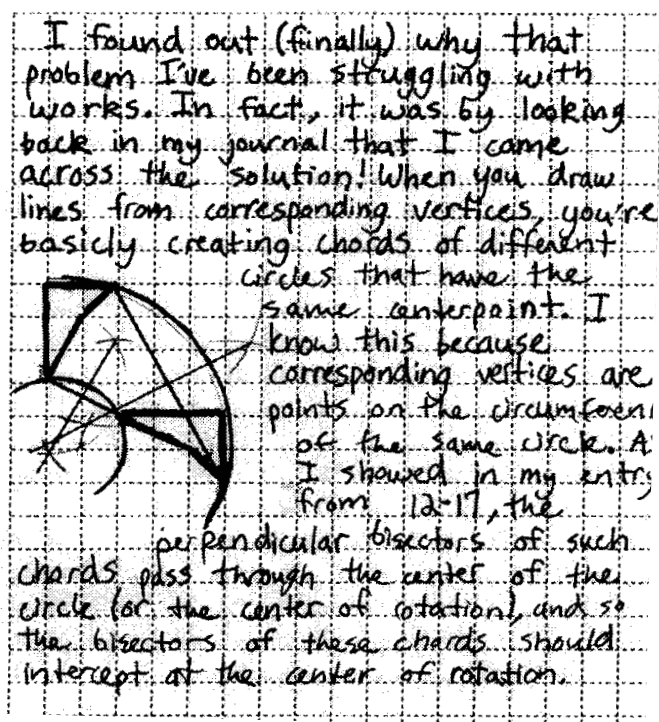 I found out (finally) why that
problem I've been struggling with
works. In fact, it was by looking
back in my journal that I came
across the solution! When you draw
lines from corresponding vertices, you're
basicly creating chords of different
circles that have the
same centerpoint. I
know this because
corresponding vertices are
points on the circumferen
of the same circle. A
I showed in my entry
from 12-17, the
perpendicular bisectors of such
chords pass through the center of the
circle (or the center of rotation), and so
the bisectors of these chords should
intercept at the center of rotation.